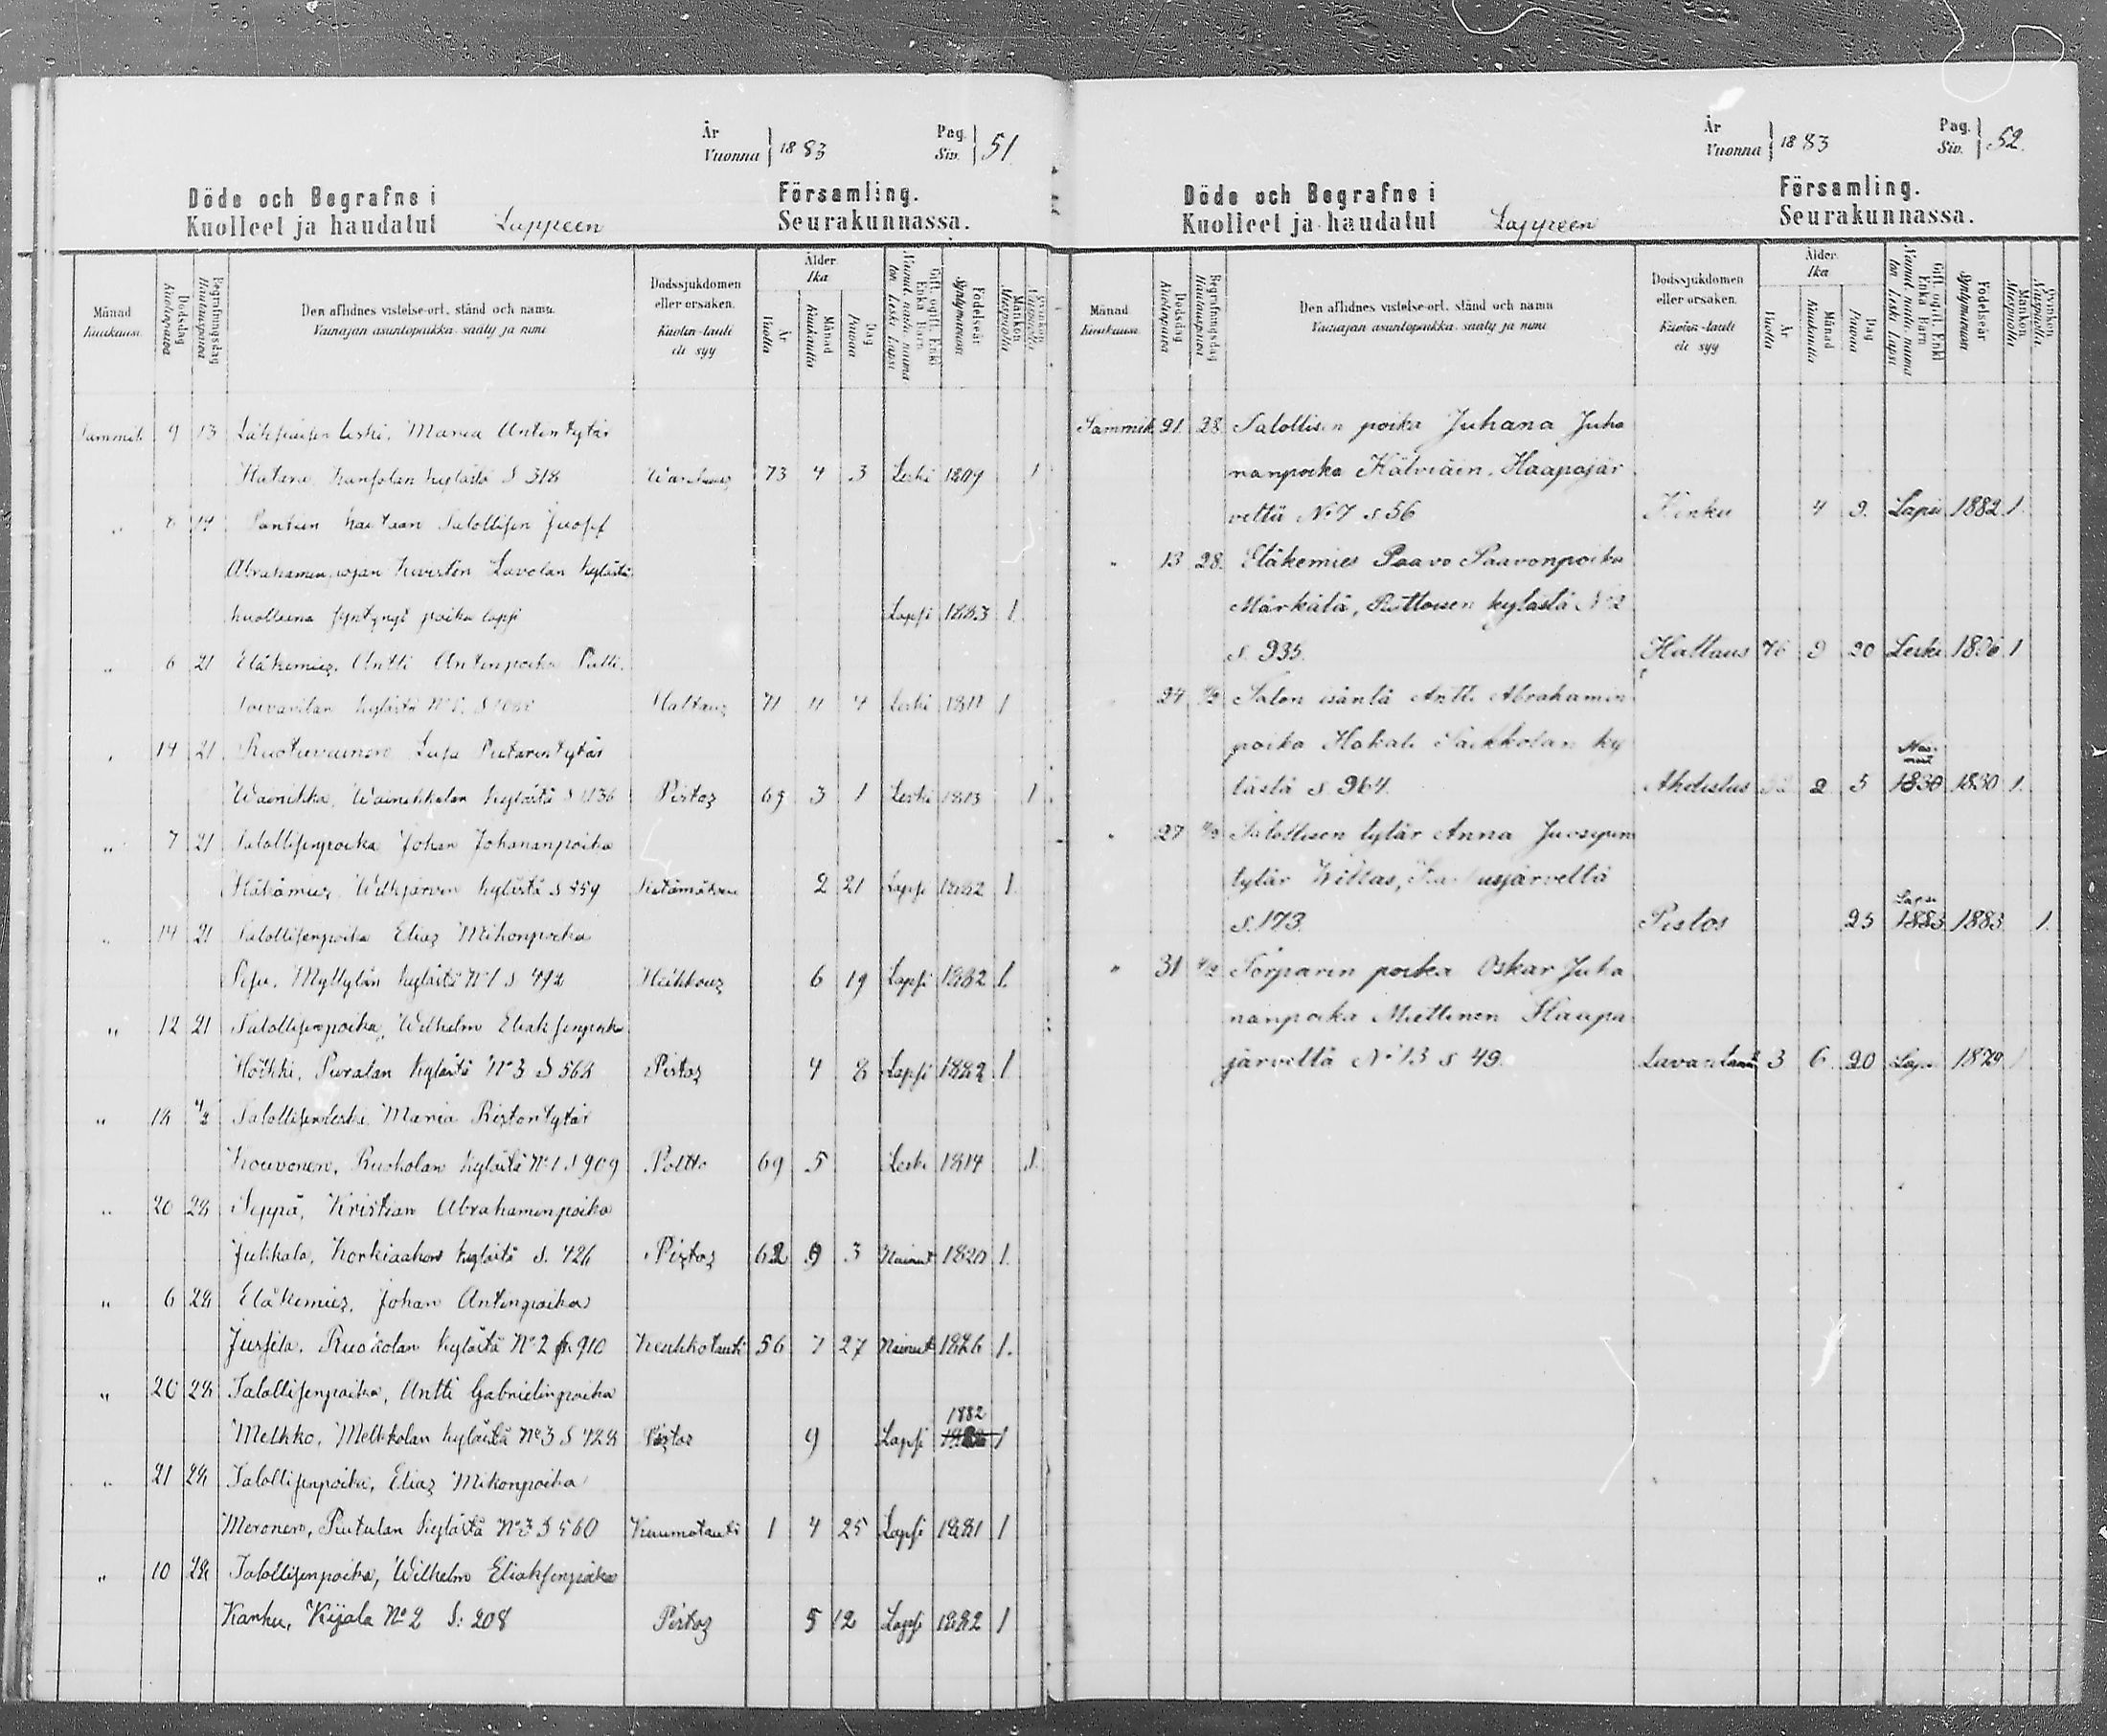 År
Vuonna } 1883 Pag. Siv. } 51
Döde och Begrafne i Församling.
Kuolleet ja haudatut Lappeen Seurakunnassa.
Månad Kuukausi. Dödsdag Kuolinpäivä Begrafningsdag Hautauspäivä Den aflidnes vistelse-ort, stånd och namn. Vainajan asuntopaikka, sääty ja nimi Dödssjukdomen eller orsaken. Kuolin-tauti eli syy Ålder Ikä År Vuotta Månad Kuukautta Dag Päivää Gift, ogift, Enkl. Enka Barn Födelseår Syntymävuosi Mankön Miespuolia Qvinkön
Tammik. 9 13 leski, Maria Antintytär
kylästä S 318 73 4 3 Leski 1809 1
" 8 14 Talollisen Juosef
Abrahaminpojan Lavolan kylästä
kuolleena syntynyt poika lapsi Lapsi 1883 1
" 6 21 Eläkemies, Antti Antinpoika
kylästä Haltaus 71 11 4 Leski 1811 1
" 14 21 Liisa Pietarintytär
Wainikka, Wainikkalan kylästä S 1136 Pistos 69 3 1 Leski 1813 1
" 7 21 Talollisenpoika Johan Johananpoika
Wilkjärven kylästä S 859 2 21 Lapsi 1882 1
" 14 21 Talollisenpoika Elias Mikonpoika
Myllylän kylästä N:1 S 492 Heikkous 6 19 Lapsi 1882 1.
" 12 21 Talollisenpoika, Wilhelm Eliaksenpoika
Höikki, kylästä N:3 S 568 Pistos 4 8 Lapsi 1882 1
" 18 4/2 Talollisenleski Maria Ristontytär
Kouvonen, Ruoholan kylästä N:1 S 909 Poltto 69 5 Leski 1814 1
" 20 28 Seppä, Kristian Abrahaminpoika
Julkkala, Korkiaahon kylästä S. 426 Pistos 62 9 3 Nainut 1820 1.
" 6 28 Eläkemies, Johan Antinpoika
Ruoholan kylästä N:2 S 910 Keuhkotauti 56 7 27 Nainut 1826 1.
" 20 28 Talollisenpoika, Antti Gabrielinpoika
1882
Melkko, Melkkolan kylästä N:3 S 428 Pistos 9 Lapsi 1
" 21 28 Talollisenpoika, Elias Mikonpoika
Moronen, kylästä N:3 S 560 Kuumatauti 1 4 25 Lapsi 1881 1
" 10 28 Talollisenpoika, Wilhelm Eliaksenpoika
Kanku, Kijala N:o 2 S: 208 Pistos 5 12 Lapsi 1882 1
År
Vuonna } 1883 Pag. Siv. } 52.
Döde och Begrafne i Församling.
Kuolleet ja haudatut Lappeen Seurakunnassa.
Månad Kuukausi. Dödsdag Kuolinpäivä Begrafningsdag Hautauspäivä Den aflidnes vistelse-ort, stånd och namn Vainajan asuntopaikka, sääty ja nimi Dödssjukdomen eller orsaken. Kuolin-tauti eli syy Ålder. Ikä År Vuotta Månad Kuukautta Dag Päivää Gift, ogift, Enkl. Enka Barn Födelseår Syntymävuosi Mankön Miespuolia Qvinkön
Tammik 21. 28 Talollisen poika Juhana Juha
nanpoika Kälviäin, Haapajär
veltä N:7 s 56 4 9. Lapsi 1882 1.
" 13 28. Eläkemies Paavo Paavonpoika
Märkälä, kylästä N:2
S. 935. Haltaus 76 9 20 Leski 1806 1
24 4/2 Talon isäntä Antti Abrahamin
poika Hakali ky
Nai-
nut
lästä S 964. Ahdistus 52 2 5 1830 1830 1.
" 27 4/2 Talollisen tytär Anna Juosepin
tytär Willas,
Lapsi
S. 173. Pistos 25 1883 1883 1.
" 31 4/2 Torparin poika Oskar Juha
nanpoika Miettinen Haapa
järveltä N:13 s 49. 3 6 20 Lapsi 1879 1